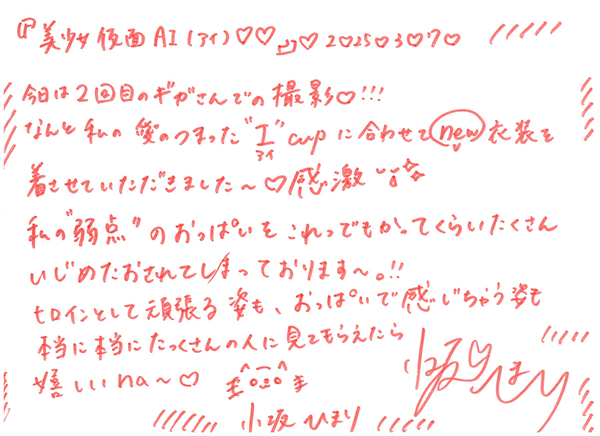 『美少女仮面AI(アイ)♡♡』♡2025♡3♡7♡
今日は2回目のギガさんでの撮影♡!!!
なんと私の愛のつまった"I"cupに合わせてnew衣装を
アイ
着させていただきました〜♡感激
私の"弱点"のおっぱいをこれっでもかってくらいたくさん
いじめたおされてしまっております〜。!!
ヒロインとして頑張る姿も、おっぱいで感じちゃう姿も
本当に本当にたっくさんの人に見てもらえたら
嬉しいna〜♡
小坂ひまり
小坂ひまり